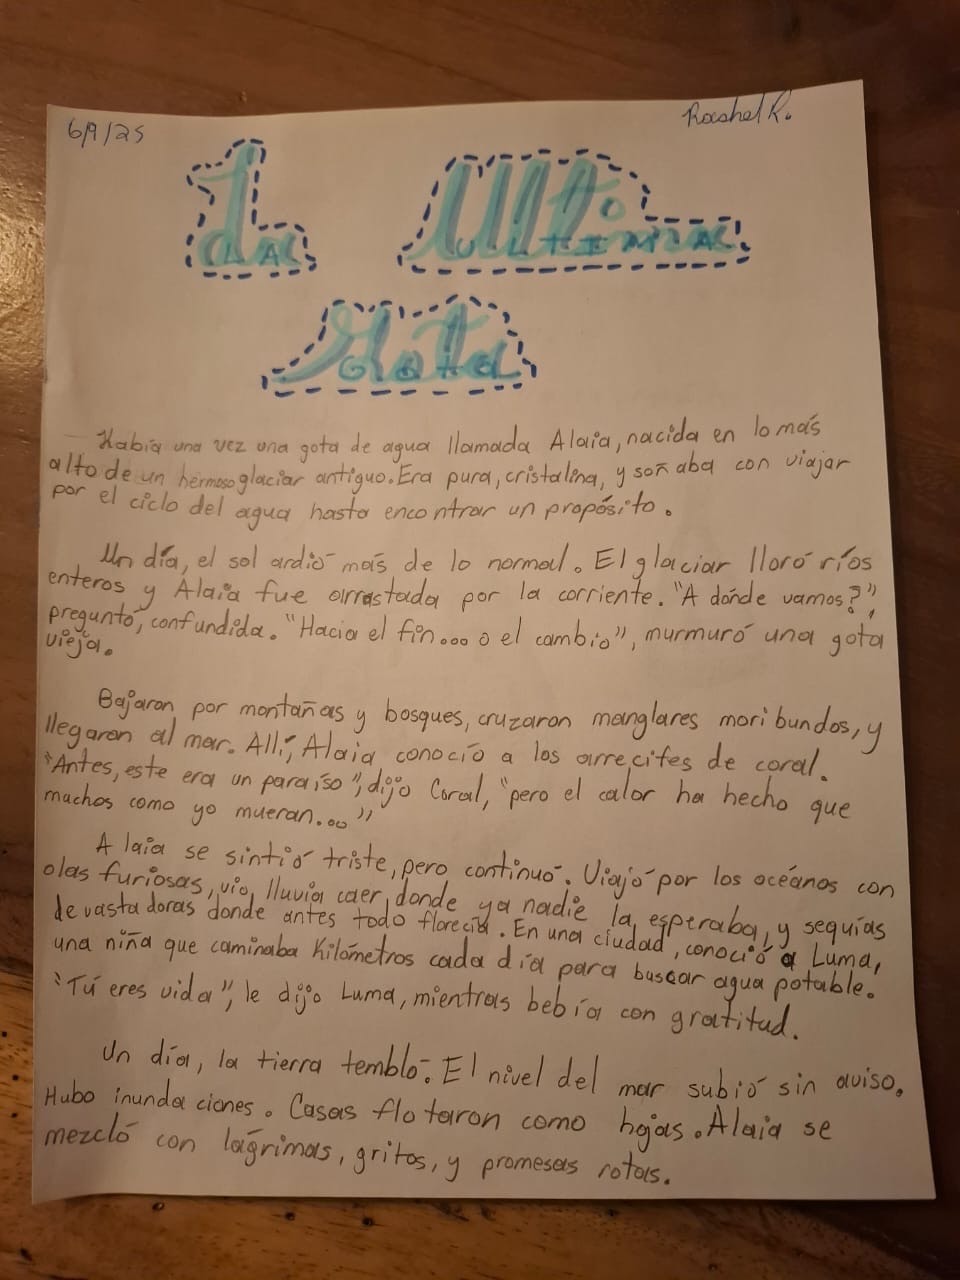 6/9/25
Rashel R.
La Ultima
LA ULTIMA
Gota
GOTA
Había una vez una gota de agua llamada Alaia, nacida en lo más
alto de un hermoso glaciar antiguo. Era pura, cristalina, y soñaba con viajar
por el ciclo del agua hasta encontrar un propósito.
Un día, el sol ardió más de lo normal. El glaciar lloró ríos
enteros y Alaia fue arrastada por la corriente. "A dónde vamos?",
preguntó, confundida. "Hacia el fin... o el cambio", murmuró una gota
vieja.
Bajaron por montañas y bosques, cruzaron manglares moribundos, y
llegaron al mar. Allí, Alaia conoció a los arrecifes de coral.
"Antes, este era un paraíso", dijo Coral, "pero el calor ha hecho que
muchos como yo mueran..."
Alaia se sintió triste, pero continuó. Viajó por los océanos con
olas furiosas, vio lluvia caer donde ya nadie la esperaba, y sequías
devastadoras donde antes todo florecía. En una ciudad, conoció a Luma,
una niña que caminaba Kilómetros cada día para buscar agua potable.
"Tú eres vida", le dijo Luma, mientras bebía con gratitud.
Un día, la tierra tembló. El nivel del mar subió sin aviso.
Hubo inundaciones. Casas flotaron como hojas. Alaia se
mezcló con lágrimas, gritos, y promesas rotas.